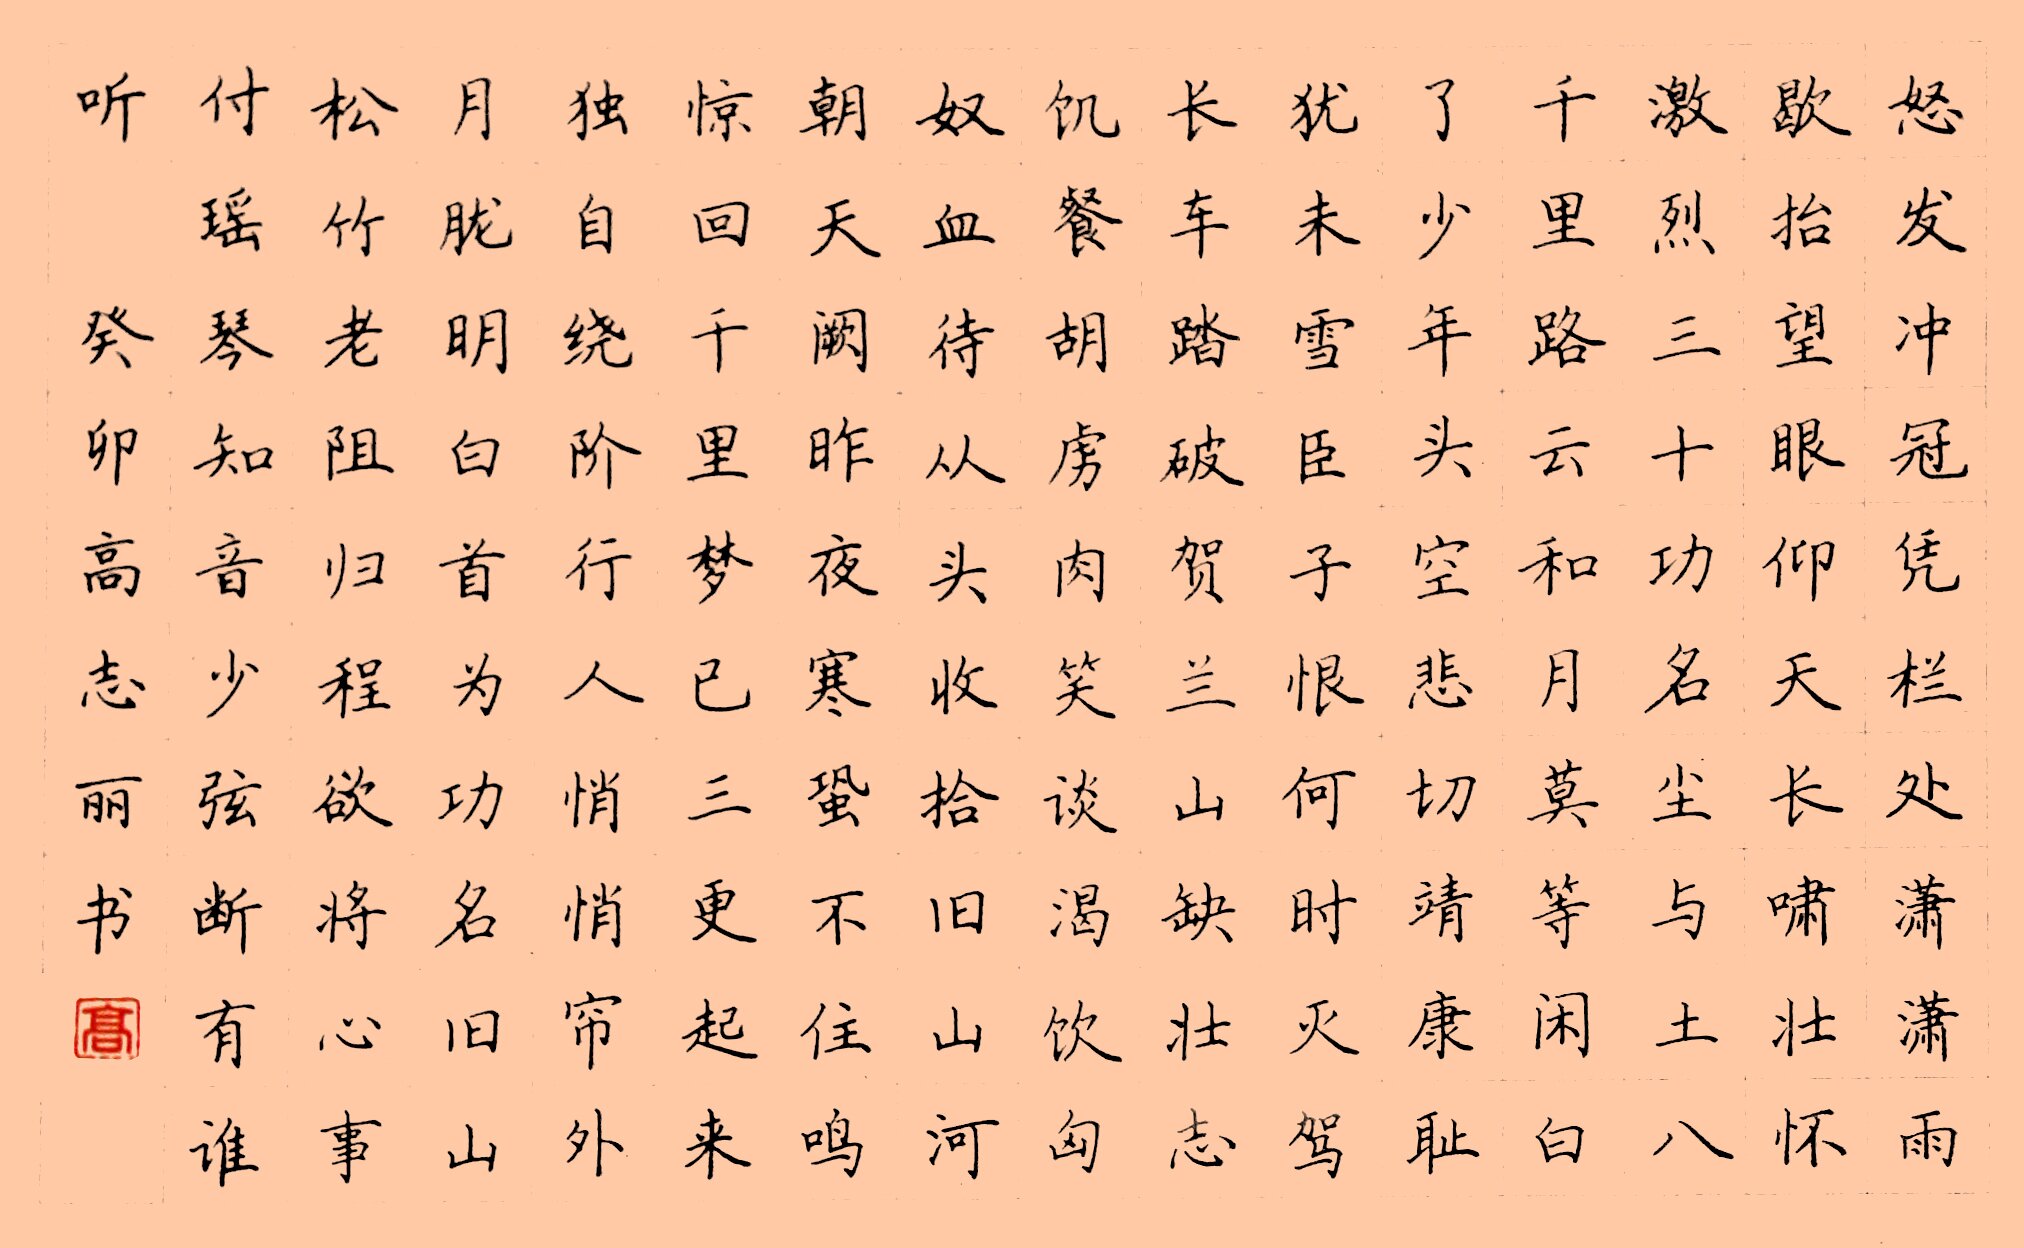 怒发冲冠凭栏处潇潇雨
歇抬望眼仰天长啸壮怀
激烈三十功名尘与土八
千里路云和月莫等闲白
了少年头空悲切靖康耻
犹未雪臣子恨何时灭驾
长车踏破贺兰山缺壮志
饥餐胡虏肉笑谈渴饮匈
奴血待从头收拾旧山河
朝天阙昨夜寒蛩不住鸣
惊回千里梦已三更起来
独自绕阶行人悄悄帘外
月胧明白首为功名旧山
松竹老阻归程欲将心事
付瑶琴知音少弦断有谁
听 癸卯高志丽书
高